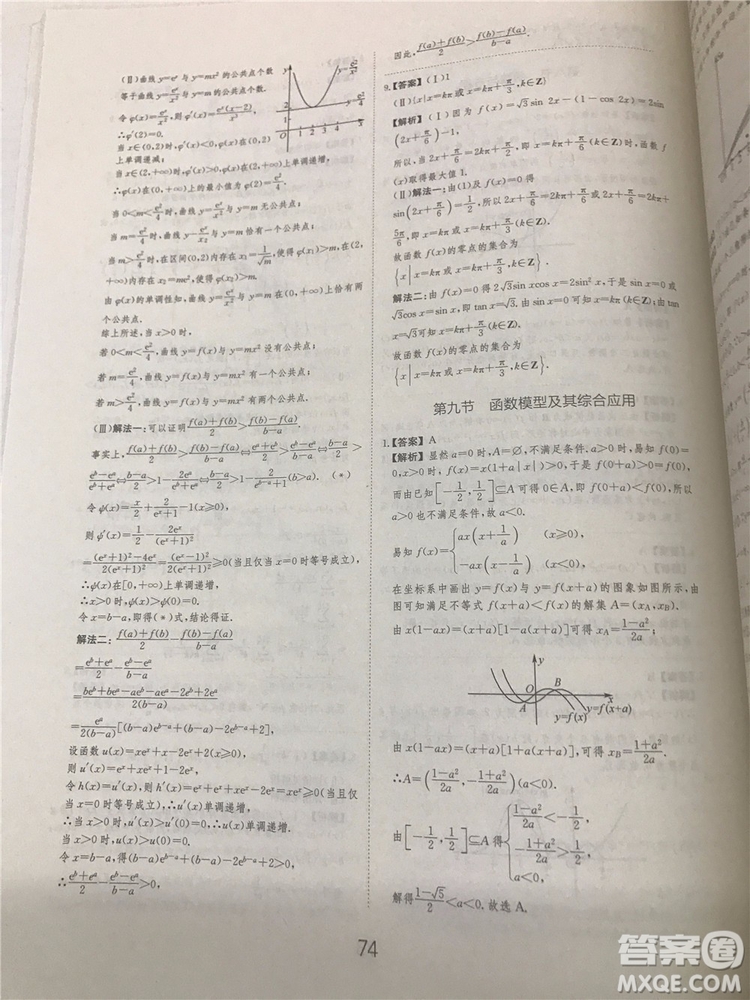 (Ⅱ)曲线 y=eˣ 与 y=mx² 的公共点个数
等于曲线 y=eˣ/x² 与 y=m 的公共点个数.
令 φ(x)=eˣ/x²,则 φ'(x)=eˣ(x-2)/x³,
∴φ'(2)=0.
当 x∈(0,2)时,φ'(x)<0,φ(x)在(0,2)
上单调递减;
当 x∈(2,+∞)时,φ'(x)>0,φ(x)在(2,+∞)上单调递增,
∴φ(x)在(0,+∞)上的最小值为 φ(2)=e²/4.
当 0<m<e²/4 时,曲线 y=eˣ/x² 与 y=m 无公共点;
当 m=e²/4 时,曲线 y=eˣ/x2 与 y=m 恰有一个公共点;
当 m>e²/4 时,在区间(0,2)内存在 x₁=1/√m,使得 φ(x₁)>m,在
(2,+∞)内存在 x₂=me²,使得 φ(x₂)>m.
由 φ(x)的单调性知,曲线 y=eˣ/x² 与 y=m 在(0,+∞)上恰有两
个公共点.
综上所述,当 x>0 时,
若 0<m<e²/4,曲线 y=f(x)与 y=mx² 没有公共点;
若 m=e²/4,曲线 y=f(x)与 y=mx² 有一个公共点;
若 m>e²/4,曲线 y=f(x)与 y=mx² 有两个公共点.
(Ⅲ)解法一:可以证明 (f(a)+f(b))/2>(f(b)-f(a))/(b-a).
事实上,(f(a)+f(b))/2>(f(b)-f(a))/(b-a)⇔(eᵃ+eᵇ)/2>(eᵇ-eᵃ)/(b-a)⇔(b-a)/2>
(eᵇ-eᵃ)/(eᵇ+eᵃ)⇔(b-a)/2>1-2eᵃ/(eᵇ+eᵃ)⇔(b-a)/2>1-2/(eᵇ⁻ᵃ+1)(b>a). (*)
令 ψ(x)=x/2+2/(eˣ+1)-1(x≥0),
则 ψ'(x)=1/2-2eˣ/(eˣ+1)²
=((eˣ+1)²-4eˣ)/(2(eˣ+1)²)=(eˣ-1)²/(2(eˣ+1)²)≥0(当且仅当 x=0 时等号成立),
∴ψ(x)在[0,+∞)上单调递增,
∴x>0 时,ψ(x)>ψ(0)=0.
令 x=b-a,即得(*)式,结论得证.
解法二:(f(a)+f(b))/2-(f(b)-f(a))/(b-a)
=(eᵇ+eᵃ)/2-(eᵇ-eᵃ)/(b-a)
=(beᵇ+beᵃ-aeᵇ-aeᵃ-2eᵇ+2eᵃ)/(2(b-a))
=eᵃ/(2(b-a))[(b-a)eᵇ⁻ᵃ+(b-a)-2eᵇ⁻ᵃ+2],
设函数 u(x)=xeˣ+x-2eˣ+2(x≥0),
则 u'(x)=eˣ+xeˣ+1-2eˣ,
令 h(x)=u'(x),则 h'(x)=eˣ+eˣ+xeˣ-2eˣ=xeˣ≥0(当且仅
当 x=0 时等号成立),∴u'(x)单调递增,
∴当 x>0 时,u'(x)>u'(0)=0,∴u(x)单调递增.
当 x>0 时,u(x)>u(0)=0.
令 x=b-a,得(b-a)eᵇ⁻ᵃ+(b-a)-2eᵇ⁻ᵃ+2>0,
∴(eᵇ+eᵃ)/2-(eᵇ-eᵃ)/(b-a)>0,
因此,(f(a)+f(b))/2>(f(b)-f(a))/(b-a).
9.【答案】(Ⅰ)1
(Ⅱ){x|x=kπ 或 x=kπ+π/3,k∈Z}
【解析】(Ⅰ)因为 f(x)=√3sin 2x-(1-cos 2x)=2sin
(2x+π/6)-1,
所以,当 2x+π/6=2kπ+π/2,即 x=kπ+π/6(k∈Z)时,函数 f
(x)取得最大值 1.
(Ⅱ)解法一:由(1)及 f(x)=0 得
sin(2x+π/6)=1/2,所以 2x+π/6=2kπ+π/6 或 2x+π/6=2kπ+
5π/6,即 x=kπ 或 x=kπ+π/3.
故函数 f(x)的零点的集合为
{x|x=kπ 或 x=kπ+π/3,k∈Z}.
解法二:由 f(x)=0 得 2√3sin xcos x=2sin²x,于是 sin x=0 或
√3cos x=sin x,即 tan x=√3.由 sin x=0 可知 x=kπ;由 tan x
=√3可知 x=kπ+π/3(k∈Z).
故函数 f(x)的零点的集合为
{x|x=kπ 或 x=kπ+π/3,k∈Z}.
第九节 函数模型及其综合应用
1.【答案】A
【解析】显然 a=0 时,A=∅,不满足条件.易知 f(0)=
0,x>0 时,f(x)=x(1+a|x|)>0,于是 f(0+a)>0=f(0),
而由已知[-1/2,1/2]⊆A 可得 0∈A,即 f(0+a)<f(0),所以
a>0 也不满足条件,故 a<0.
易知 f(x)={ax(x+1/a) (x≥0),
-ax(x-1/a) (x<0),
在坐标系中画出 y=f(x)与 y=f(x+a)的图象如图所示,由
图可知满足不等式 f(x+a)<f(x)的解集 A=(xA,xB).
由 x(1-ax)=(x+a)[1-a(x+a)]可得 xA=(1-a²)/2a;
y
O
A
B
x
y=f(x)
y=f(x+a)
由 x(1+ax)=(x+a)[1+a(x+a)],可得 xB=-(1+a²)/2a.
∴A=((1-a²)/2a,-(1+a²)/2a)(a<0).
由[-1/2,1/2]⊆A 得{(1-a²)/2a<-1/2,
-(1+a²)/2a>1/2,
a<0,
解得(1-√5)/2<a<0.故选 A.
74
答案圈
MXQE.COM